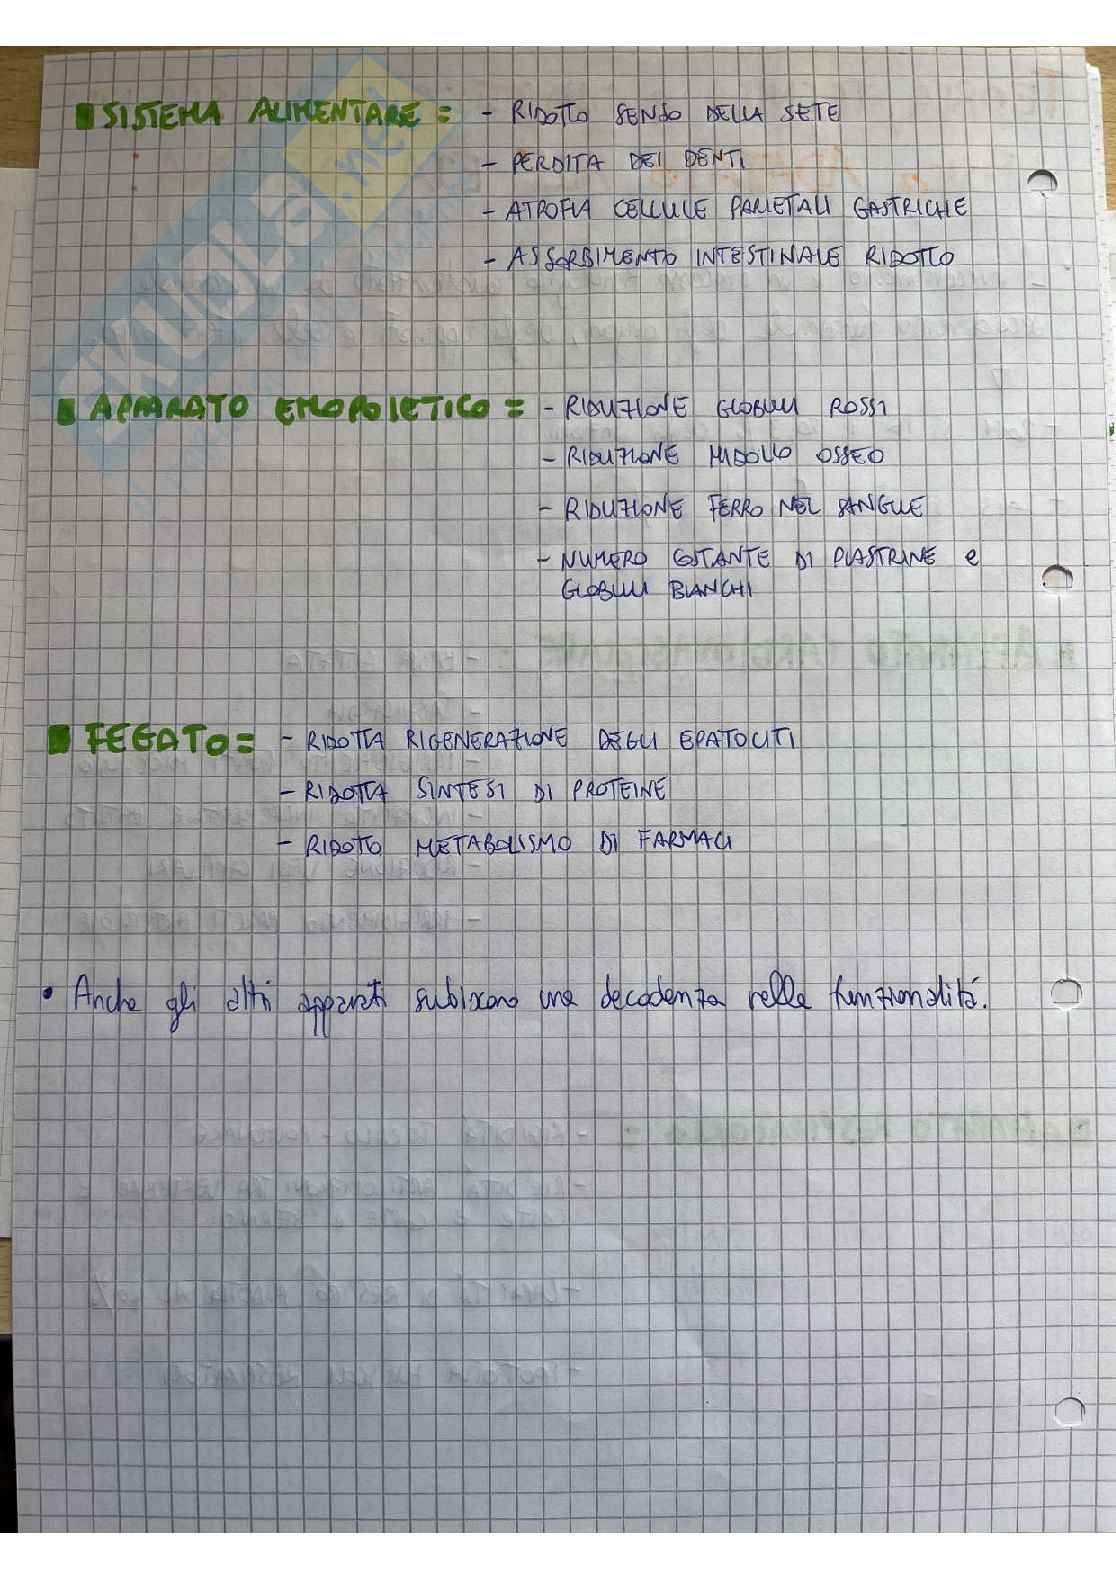 SISTEMA ALIMENTARE = - RIDOTTO SENSO DELLA SETE
- PERDITA DEI DENTI
- ATROFIA CELLULE PARIETALI GASTRICHE
- ASSORBIMENTO INTESTINALE RIDOTTO
APPARATO EMOPOIETICO = - RIDUZIONE GLOBULI ROSSI
- RIDUZIONE MIDOLLO OSSEO
- RIDUZIONE FERRO NEL SANGUE
- NUMERO COSTANTE DI PIASTRINE e
GLOBULI BIANCHI
FEGATO = - RIDOTTA RIGENERAZIONE DEGLI EPATOCITI
- RIDOTTA SINTESI DI PROTEINE
- RIDOTTO METABOLISMO DI FARMACI
• Anche gli altri apparati subiscono una decadenza nella funzionalitá.
SKUOLA.net